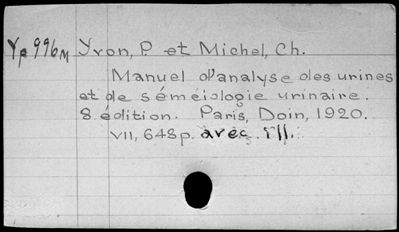 Yp 996m Yvon, P. et Michel, Ch.
Manuel d'analyse des urines
et de séméiologie urinaire.
8. édition. Paris, Doin, 1920.
VII, 648 p. avec ill.